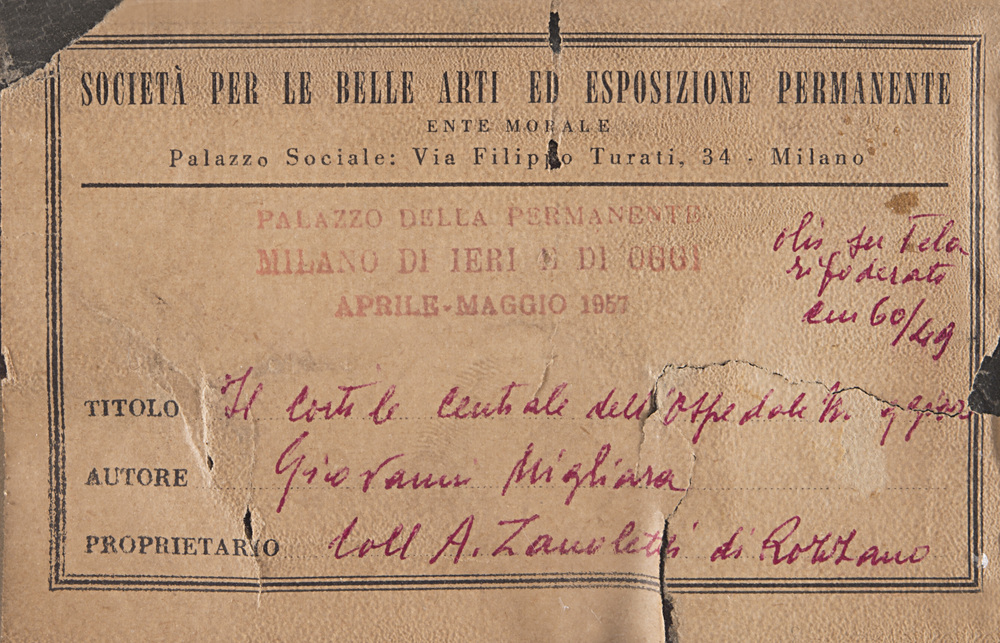 SOCIETÀ PER LE BELLE ARTI ED ESPOSIZIONE PERMANENTE
ENTE MORALE
Palazzo Sociale: Via Filippo Turati, 34 - Milano
PALAZZO DELLA PERMANENTE
MILANO DI IERI E DI OGGI
APRILE-MAGGIO 1957
olio su tela
rifoderato
cm 60/49
TITOLO Il cortile centrale dell'Ospedale
AUTORE Giovanni Migliara
PROPRIETARIO Coll A. Zanoletti di Rozzano